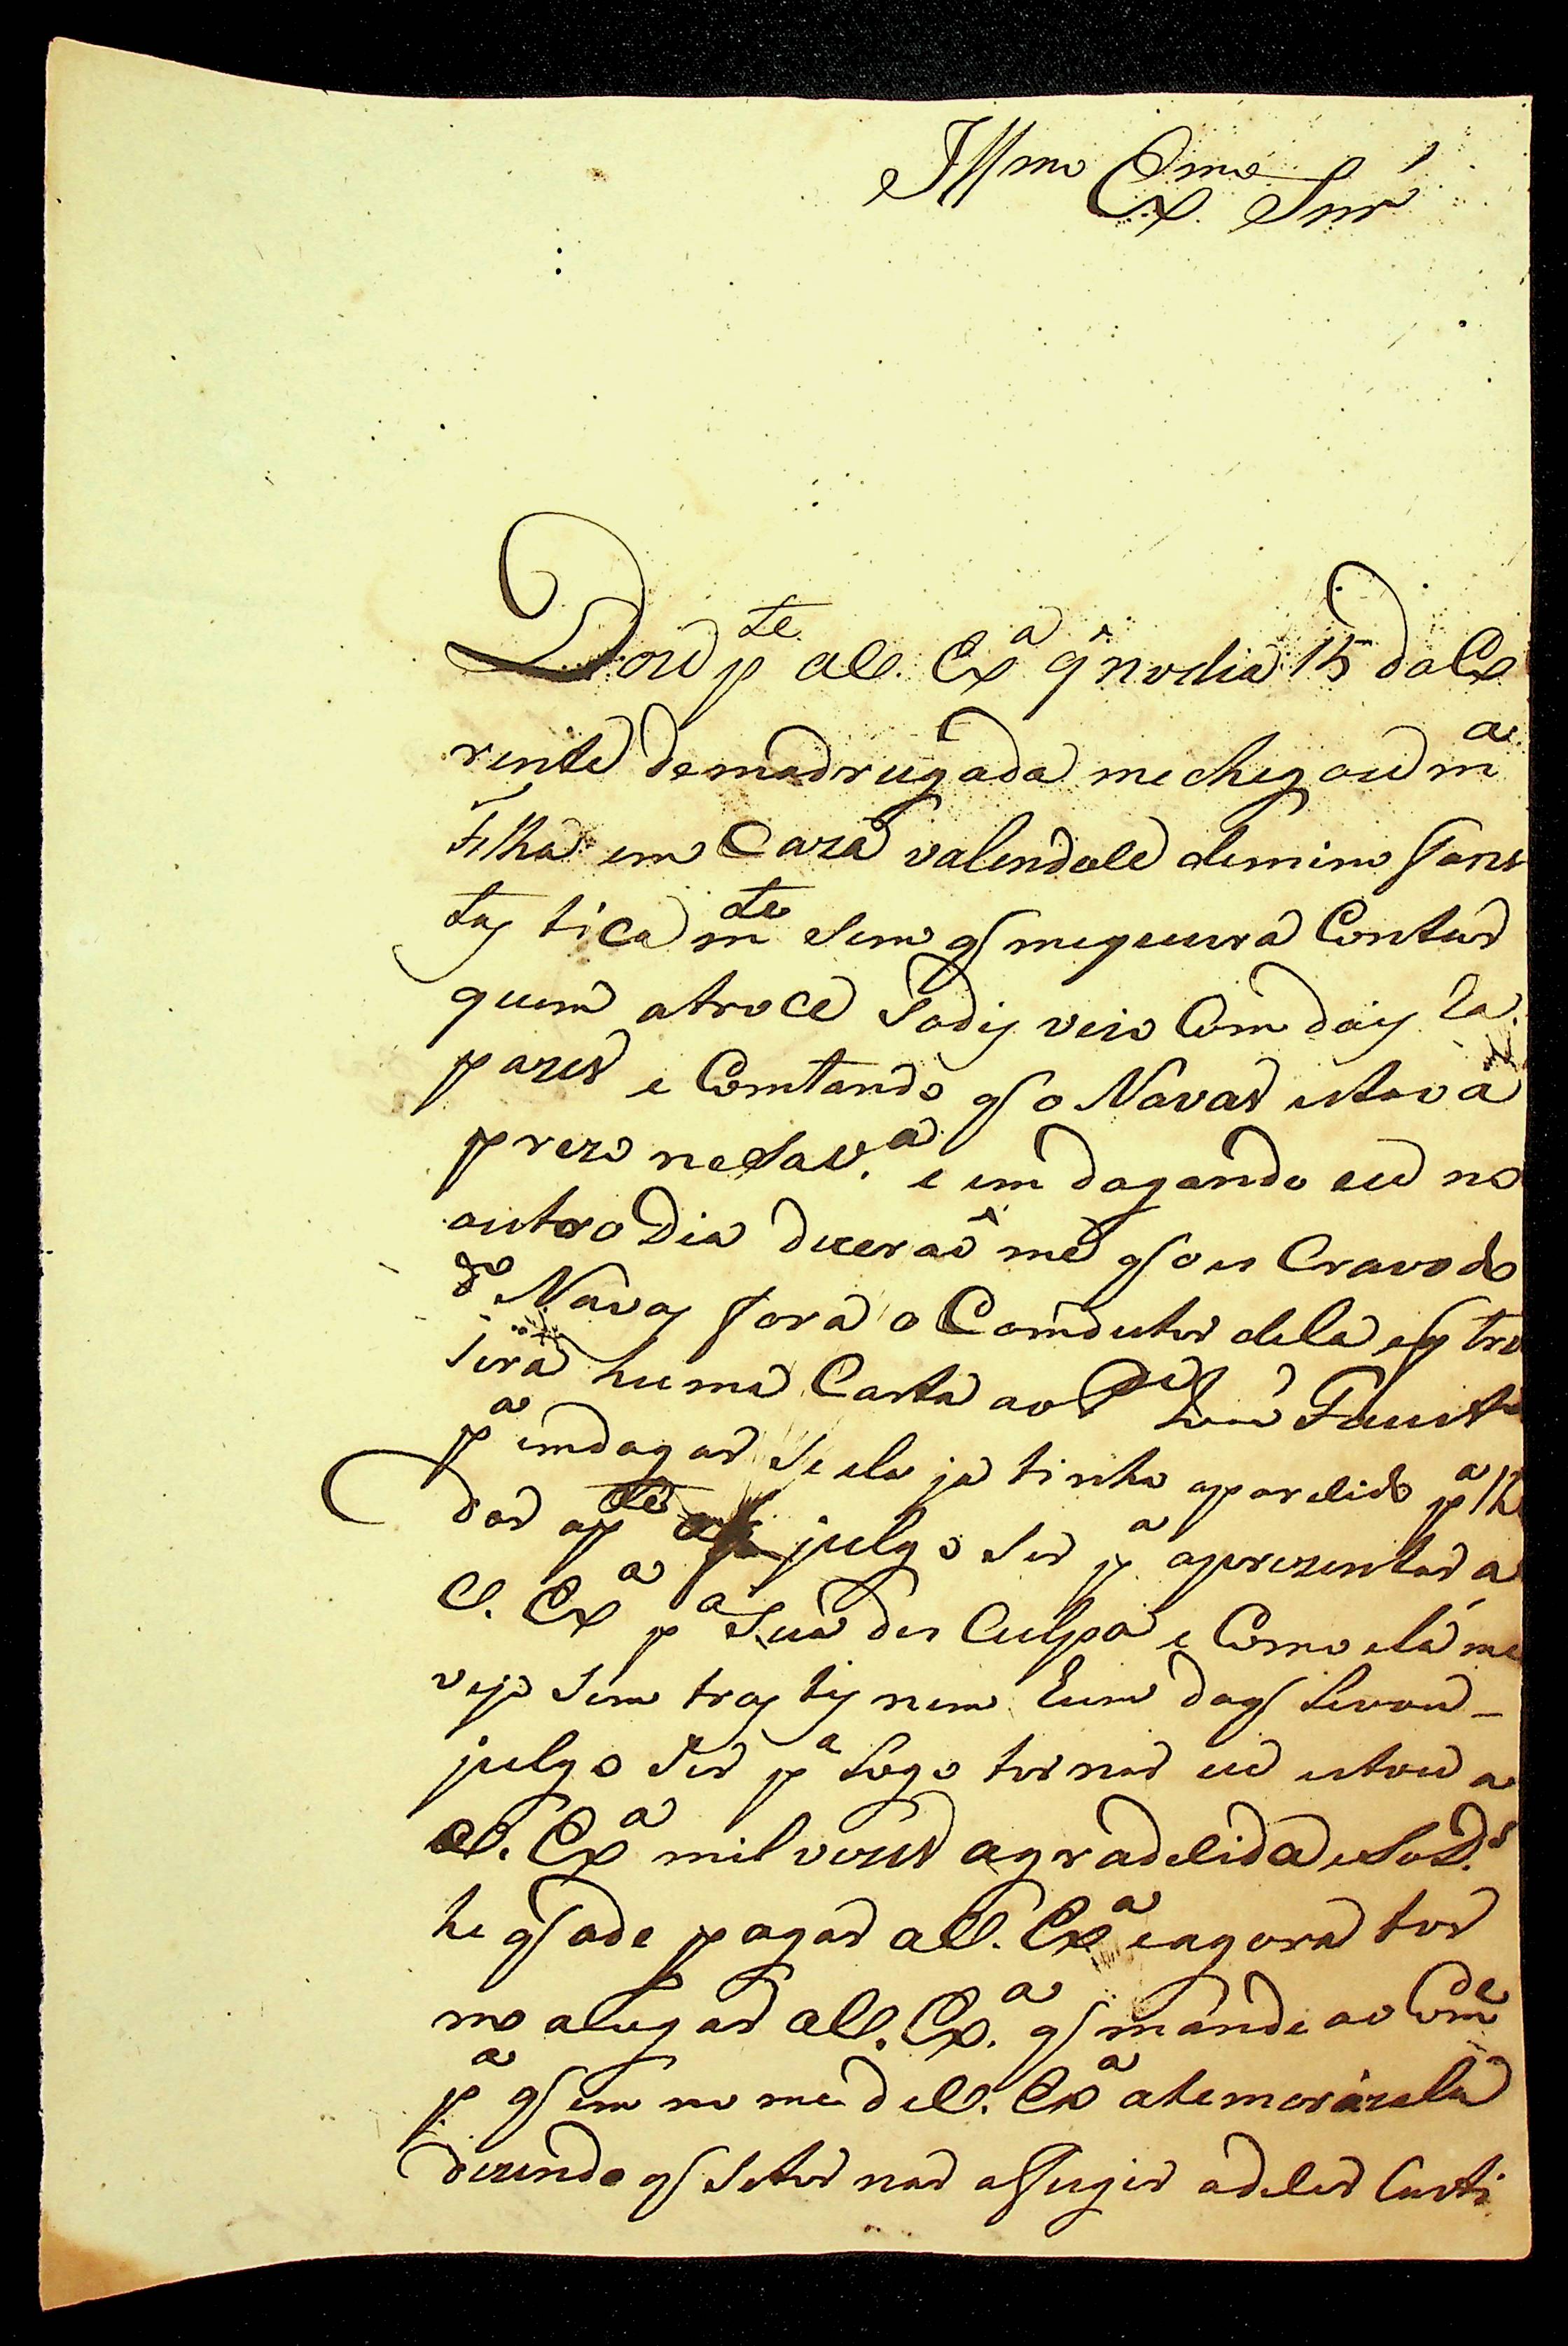 Illmo Exmo Snr'
Dou pte a V. Exa q̂ no dia 15 do Co
rente de madrugada me chegou ma
Filha em Caza valendoce de mim fans
tas ticamte sem q me queira Contar
quem a troce só dis veio Com dois ra
pazes e Comtando q o Navas estava
prezo nesa V.a e emdagando eu no
outro dia diceraõ me q o es Cravo do
do Navas fora o Comdutor dela e q tro
sera huma Carta ao Pde Fausto
pa emdagar se ela ja tinha aparecido pa lhe
dar apte julgo ser pa aprezentar a
V. Exa pa sua des Culpa e Como ela me
veio sem trastes nem Eum dos q levou
julgo ser pa logo tornar eu estou a
V. Exa mil vezes agradecida e só D.s
he q ade pagar a V. Exa e agora tor
no a rogar a V. Ex.a q mande ao Comde
pa q em nome de V. Exa atemorize la
dizendo q se tornar a fugir adeser Casti